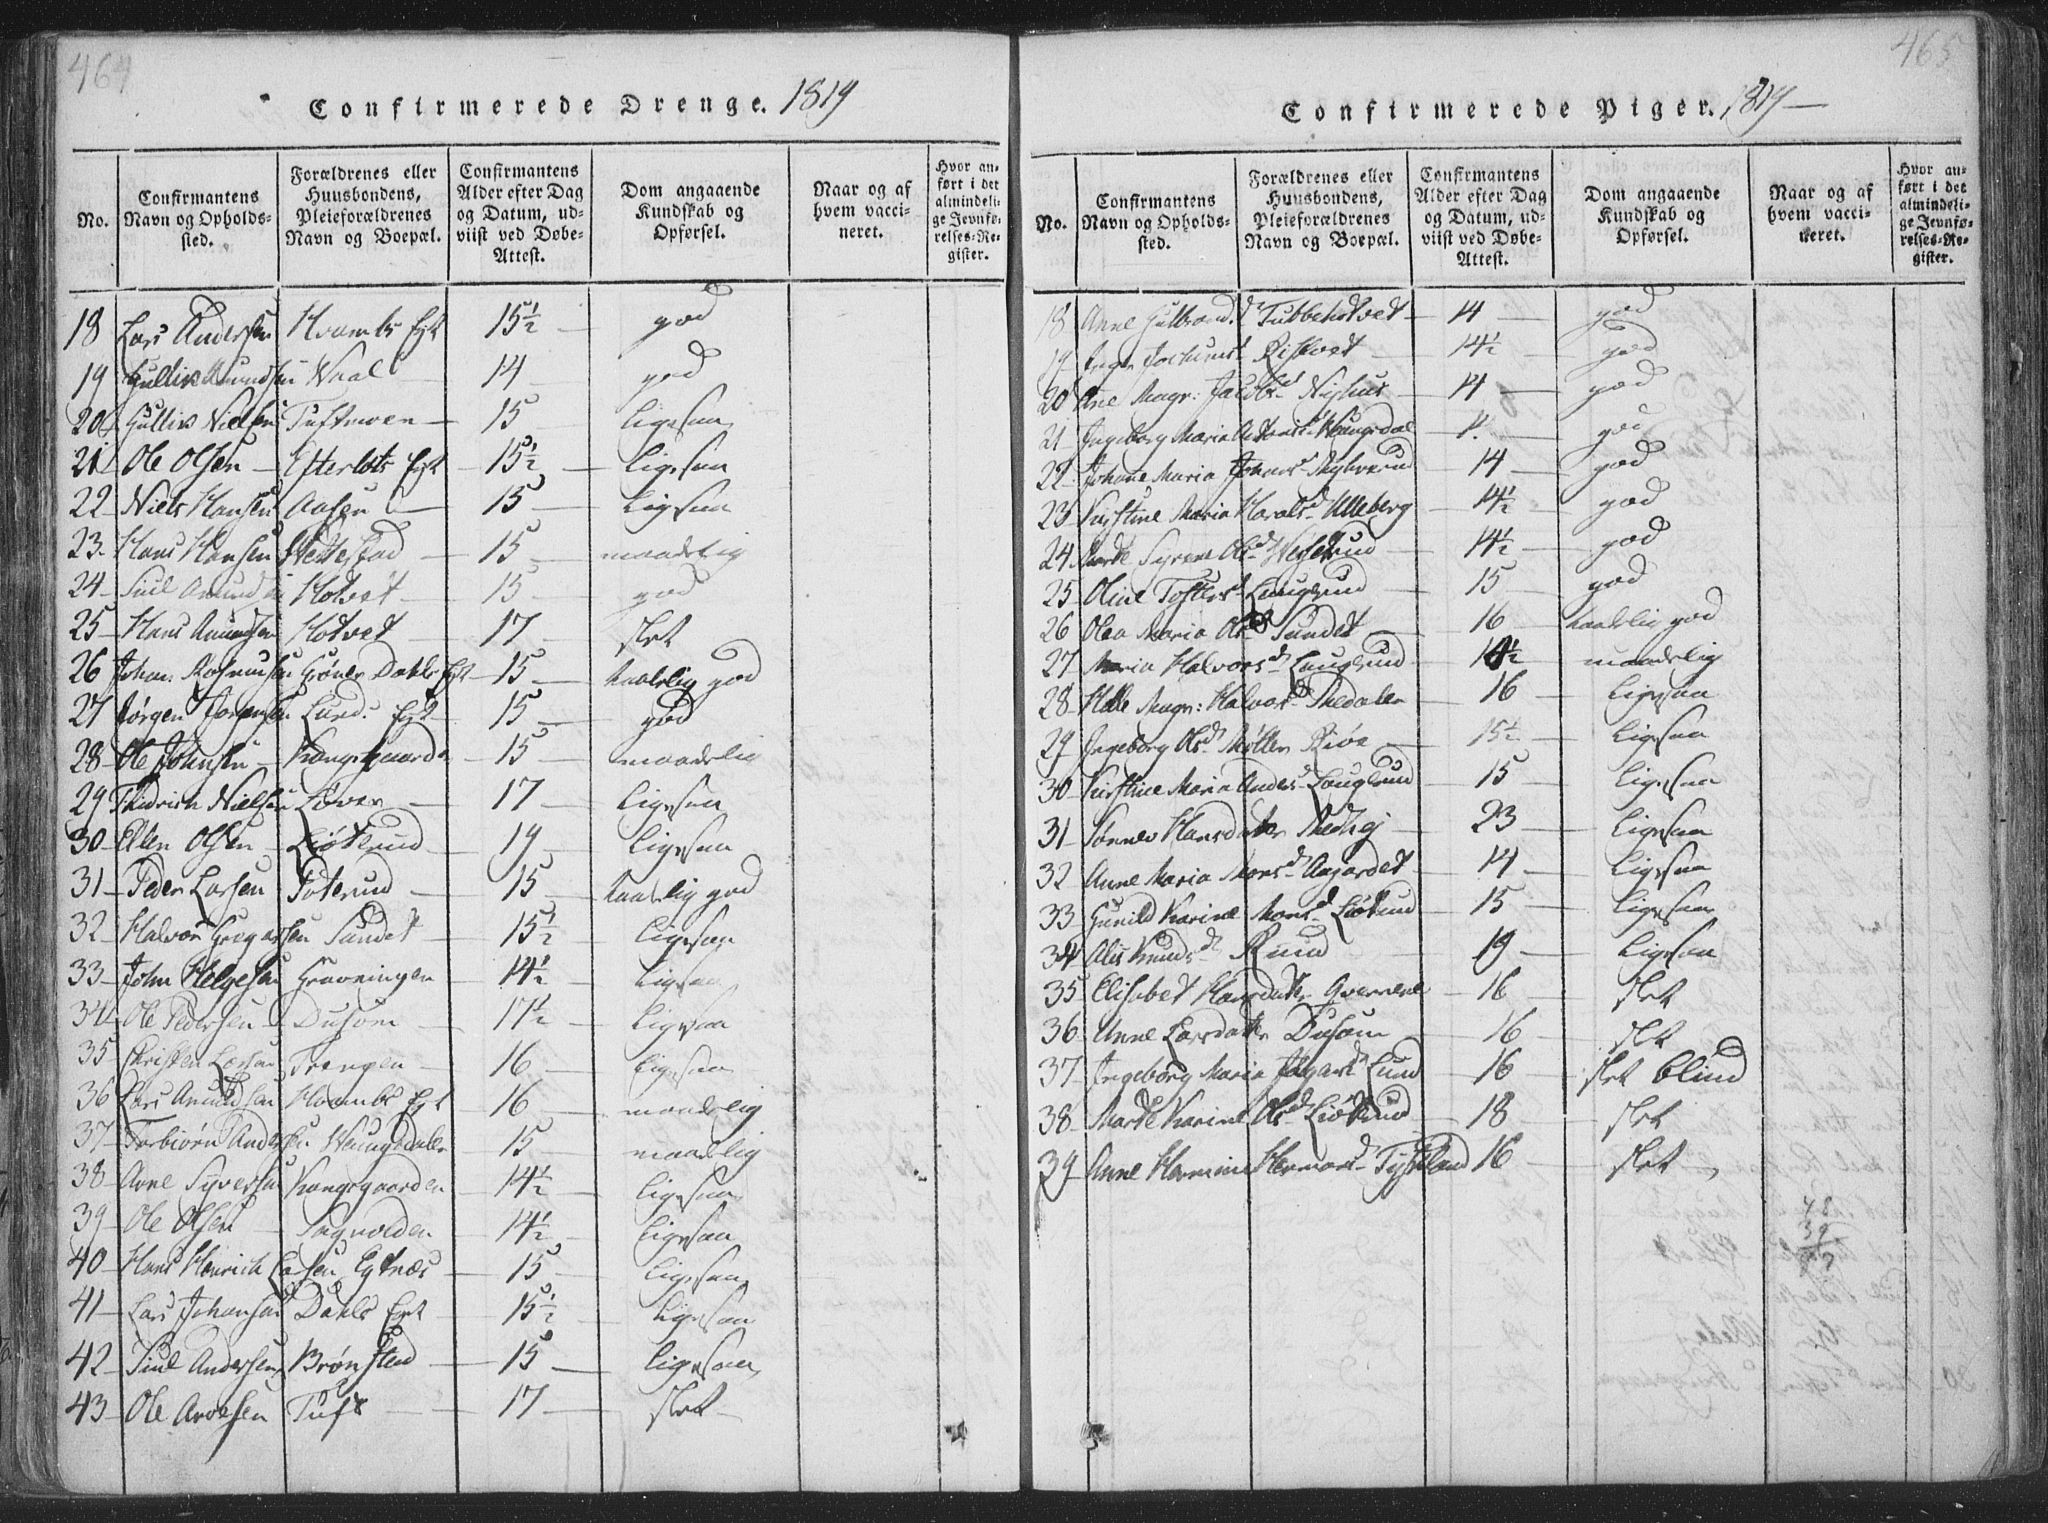 464
Confirmerede Drenge. 1819
No. | Confirmantens Navn og Opholdssted. | Forældrenes eller Huusbondens, Pleieforældrenes Navn og Boepæl. | Confirmantens Alder efter Dag og Datum, udviist ved Døbe-Attest. | Dom angaaende Kundskab og Opførsel. | Naar og af hvem vaccineret. | Hvor anført i det almindelige Jevnførelses-Register.
18 Lars Andersen Hvambs Egt 15½ god
19 Gulliv Amundsen Waal 14 god
20 Gulliv Nielsen Tuftmoen 15 Ligesaa
21 Ole Olsen Efteløts Egt 15½ Ligesaa
22 Niels Hansen Aasen 15 Ligesaa
23 Hans Hansen Wettestad 15 maadelig
24 Juel Amundsen Hotvet 15 god
25 Hans Amundsen Hotvet 17 slet
26 Johan Rasmusen Dahls Egt 15 taalelig god
27 Jørgen Jørgensen Lund. Egt 15 god
28 Ole Johnsen Kongsgaarde 15 maadelig
29 Thidrich Nielsen Løver 17 Ligesaa
30 Ellen Olsen Liøterud 19 Ligesaa
31 Peder Larsen Foterud 15 taalelig god
32 Halvor Gregarsen Sundet 15½ Ligesaa
33 John Helgesen Gravningen 14½ Ligesaa
34 Ole Pedersen Dusom 17½ Ligesaa
35 Christen Larsen Trengen 16 Ligesaa
36 Lars Amundsen Hvambs Egt 16 maadelig
37 Torbiørn Andersen Waungsdalen 15 maadelig
38 Arne Syversen Kongsgaarden 14½ Ligesaa
39 Ole Olsen Sagvolden 14½ Ligesaa
40 Hans Henrich Larsen Egtnæs 15 Ligesaa
41 Lars Johansen Dahls Egt 15½ Ligesaa
42 Juel Andersen Brønsted 15 Ligesaa
43 Ole Arvesen Tuft 17 slet
465
Confirmerede Piger. 1819
No. | Confirmantens Navn og Opholdssted. | Forældrenes eller Huusbondens, Pleieforældrenes Navn og Boepæl. | Confirmantens Alder efter Dag og Datum, udviist ved Døbe-Attest. | Dom angaaende Kundskab og Opførsel. | Naar og af hvem vaccineret. | Hvor anført i det almindelige Jevnførelses-Register.
18 Anne Gulbrand.d Tubbehotvet 14 god
19 Inger Jochumsd Ristvedt 14½ god
20 Ane Magr: Jacobsd Nyhus 14 god
21 Ingeborg Maria Waungsdal 14 god
22 Johane Maria 14 god
23 Kirstine Maria Haralsd Ulleberg 14½ god
24 Marte Syrene Olsd 14½ god
25 Oline Tostensd Laugerud 15 god
26 Olea Maria Olsd Sundet 16 taalelig god
27 Maria Halvorsd Laugerud maadelig
28 Helle Magr: Halvorsd Thedalen 16 Ligesaa
29 Ingeborg Olsd Møller 15½ Ligesaa
30 Kirstine Maria Andersd Laugerud 15 Ligesaa
31 Hansdatter 23 Ligesaa
32 Anne Maria Monsd Aagardet 14 Ligesaa
33 Gunild Karine Monsd Liøterud 15 Ligesaa
34 Alis Knudsd Ruud 19 Ligesaa
35 Elisabet Hansdatter Qvernene 16 slet
36 Anne Larsdatter Dusom 16 slet
37 Ingeborg Maria Lund 16 slet blind
38 Marte Karine Olsd Liøterud 18 slet
39 Anne Hermine Hermansd Tyskland 16 slet
43
39